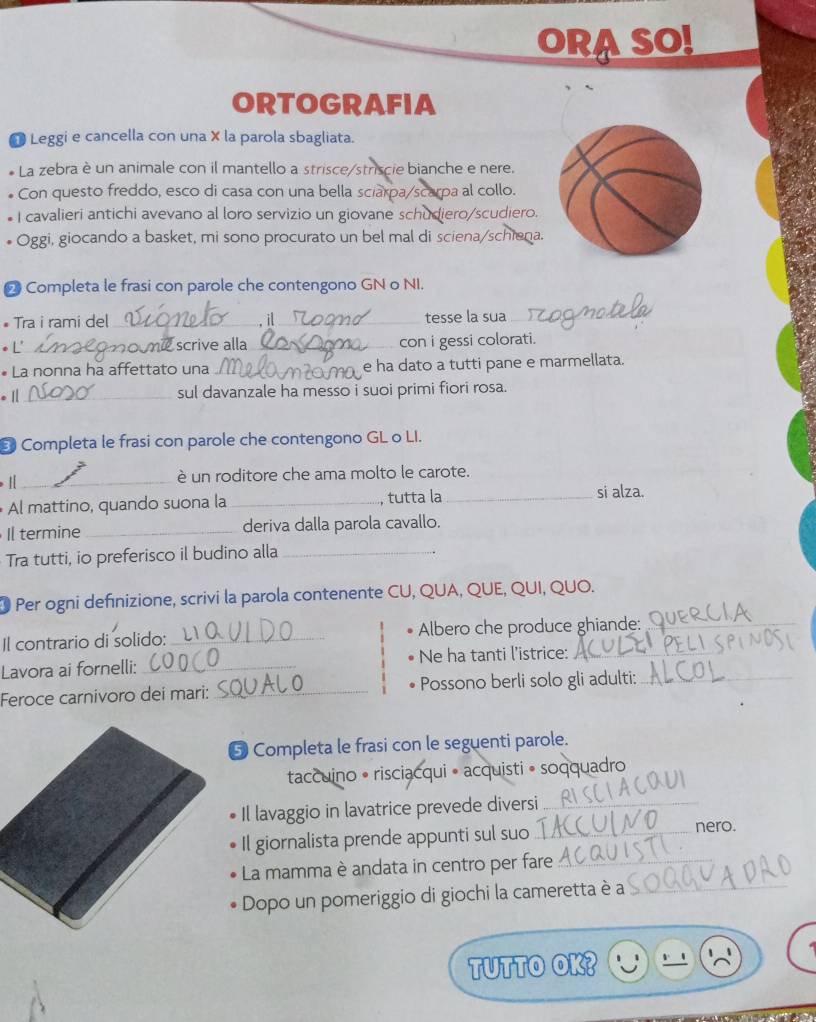 ORA SO!
ORTOGRAFIA
1 Leggi e cancella con una X la parola sbagliata.
• La zebra è un animale con il mantello a strisce/striscie bianche e nere.
• Con questo freddo, esco di casa con una bella sciarpa/scarpa al collo.
• I cavalieri antichi avevano al loro servizio un giovane schudiero/scudiero.
• Oggi, giocando a basket, mi sono procurato un bel mal di sciena/schiena.
2 Completa le frasi con parole che contengono GN o NI.
• Tra i rami del vigneto, il rogno tesse la sua rognatela
• L' insegnante scrive alla con i gessi colorati.
• La nonna ha affettato una Melanzana e ha dato a tutti pane e marmellata.
• Il Nsoso sul davanzale ha messo i suoi primi fiori rosa.
3 Completa le frasi con parole che contengono GL o LI.
• Il è un roditore che ama molto le carote.
• Al mattino, quando suona la , tutta la si alza.
• Il termine deriva dalla parola cavallo.
Tra tutti, io preferisco il budino alla .
4 Per ogni definizione, scrivi la parola contenente CU, QUA, QUE, QUI, QUO.
Il contrario di solido: LIQUIDO
Lavora ai fornelli: COOCO
Feroce carnivoro dei mari: SQUALO
• Albero che produce ghiande: QUERCIA
• Ne ha tanti l'istrice: ACULEI PELI SPINOSI
• Possono berli solo gli adulti: ALCOL
5 Completa le frasi con le seguenti parole.
taccuino • risciacqui • acquisti • soqquadro
• Il lavaggio in lavatrice prevede diversi RISCIACQUI
• Il giornalista prende appunti sul suo TACCUINO nero.
• La mamma è andata in centro per fare ACQUISTI.
• Dopo un pomeriggio di giochi la cameretta è a SOQQUADRO
TUTTO OK?